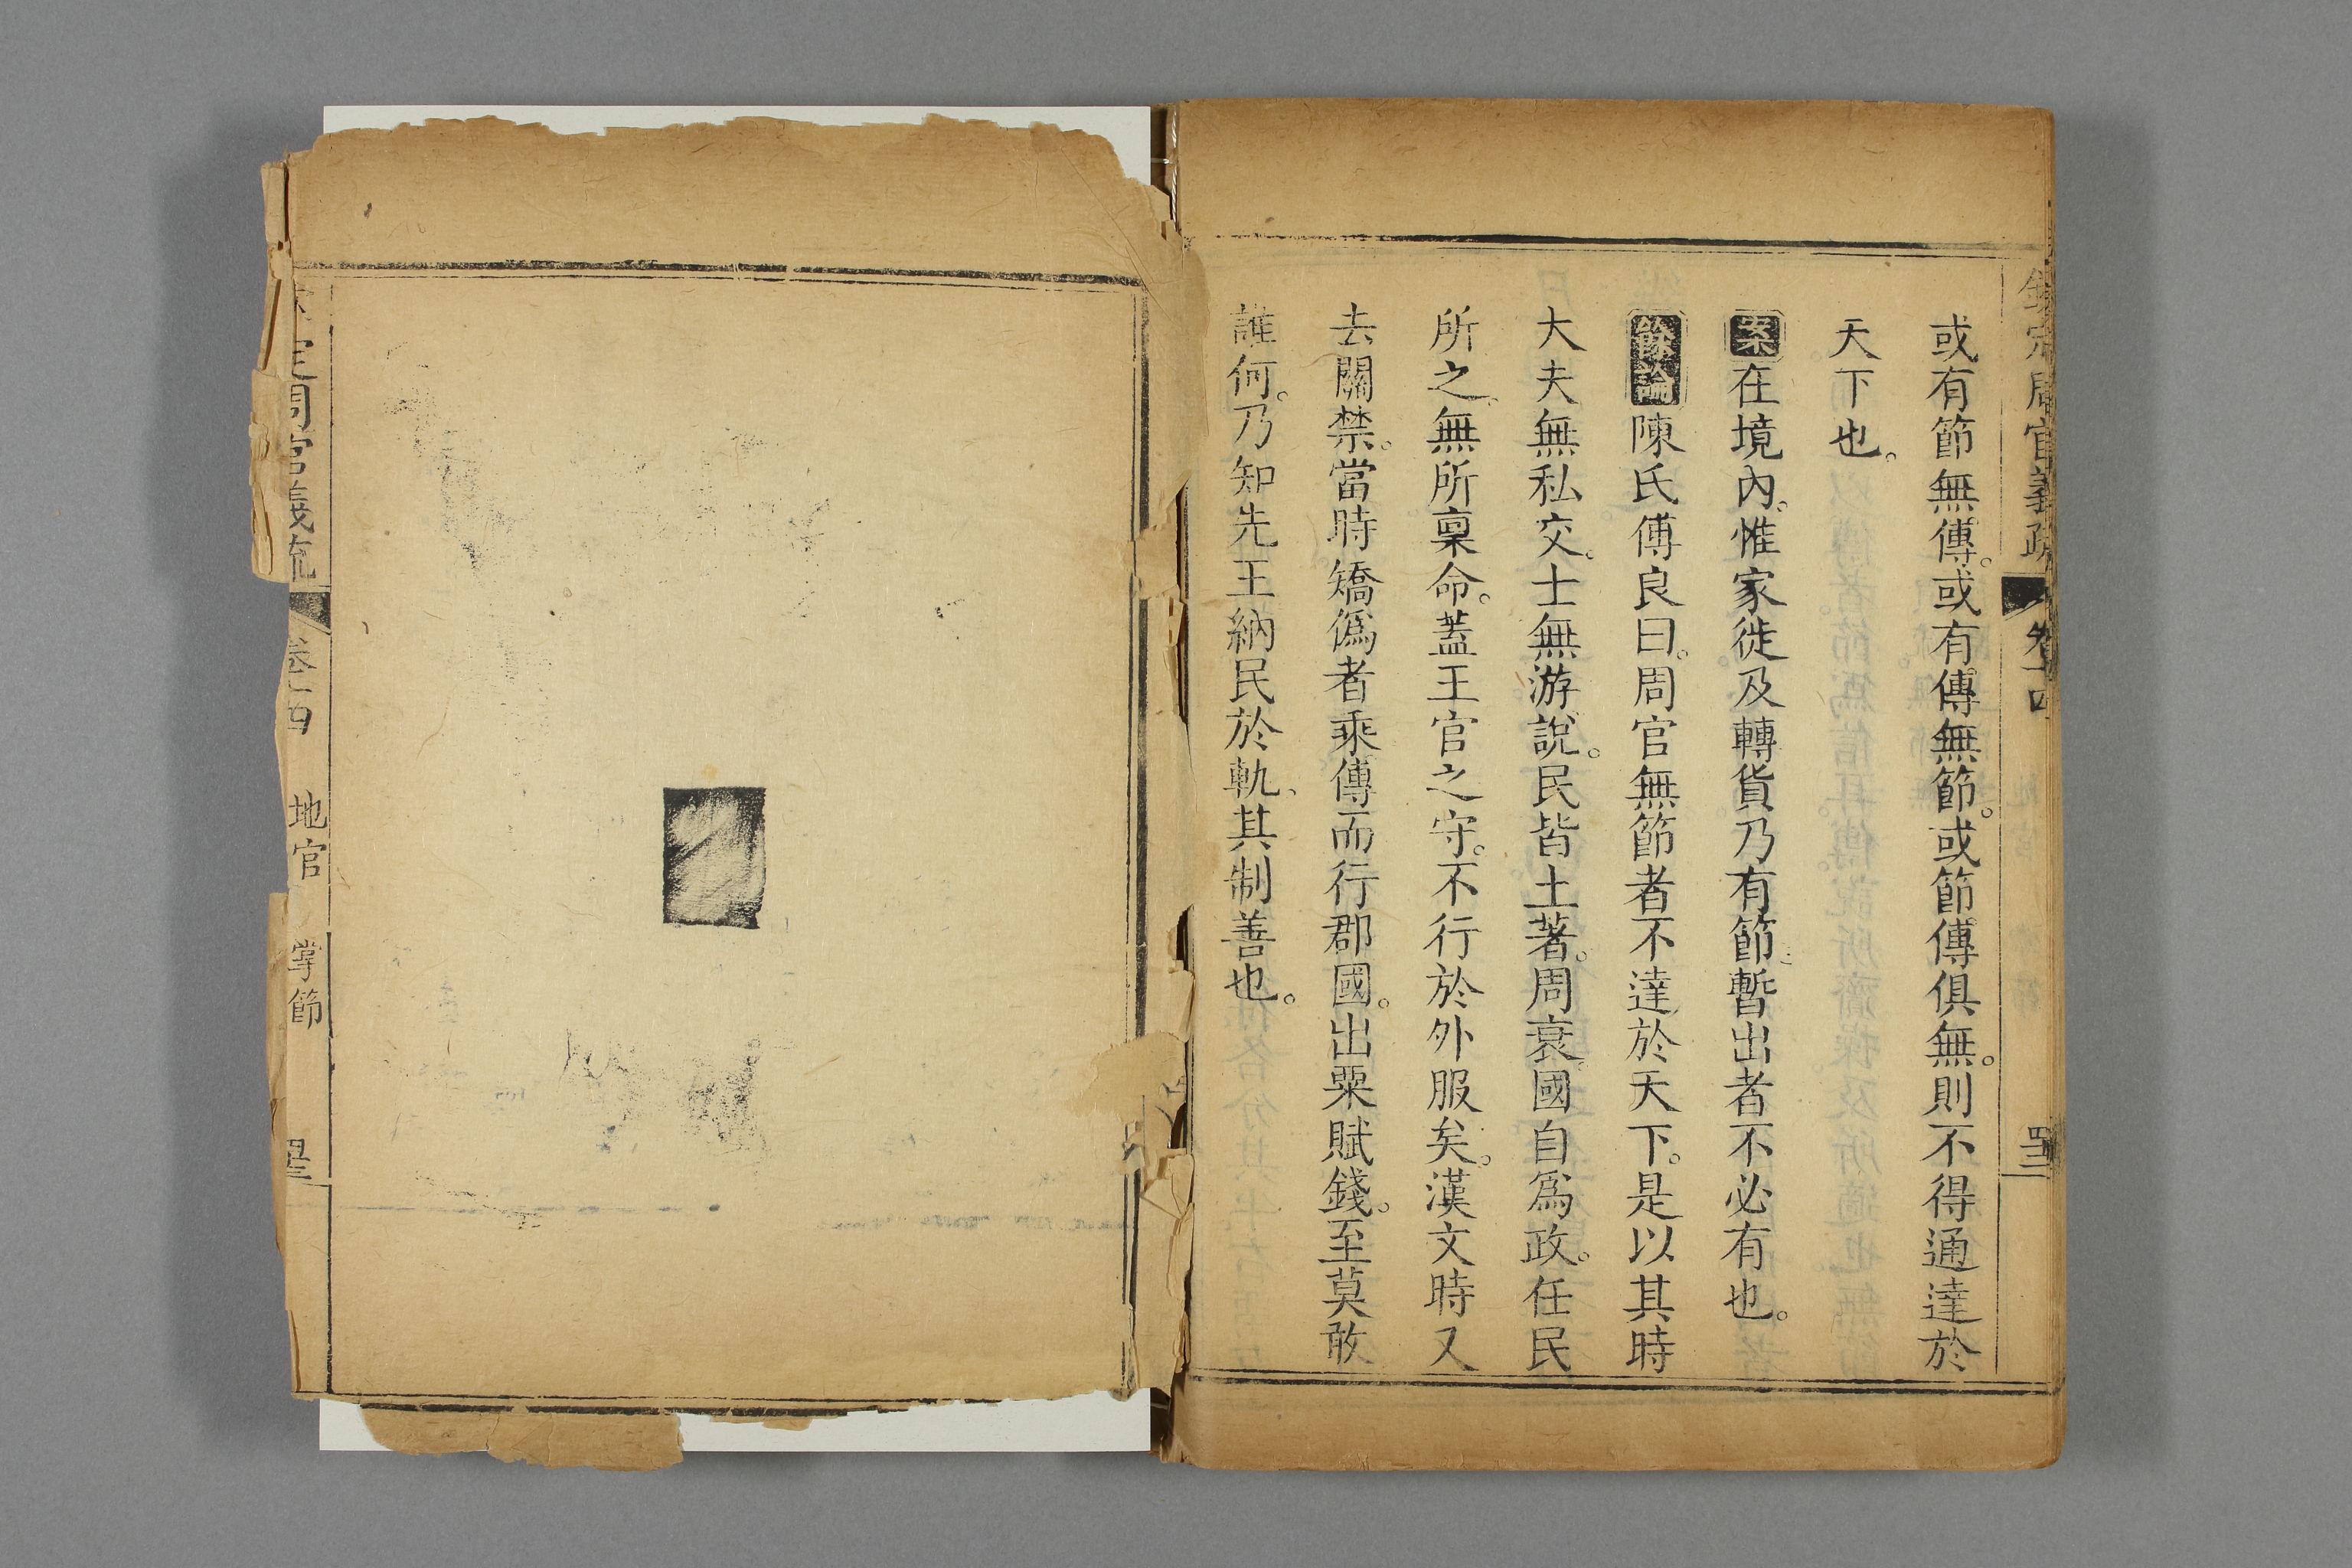 欽定周官義疏 卷十四
或有節無傳。或有傳無節。或節傳俱無。則不得通達於
天下也。
案在境內。惟家徙及轉貨乃有節、暫出者不必有也。
餘論陳氏傅良曰。周官無節者不達於天下。是以其時
大夫無私交。士無游說。民皆土著。周衰國自爲政。任民
所之。無所稟命。蓋王官之守。不行於外服矣。漢文時又
去關禁。當時矯僞者乘傳而行郡國。出粟賦錢。至莫敢
誰何。乃知先王納民於軌、其制善也。
定周官義疏 卷十四 地官 掌節